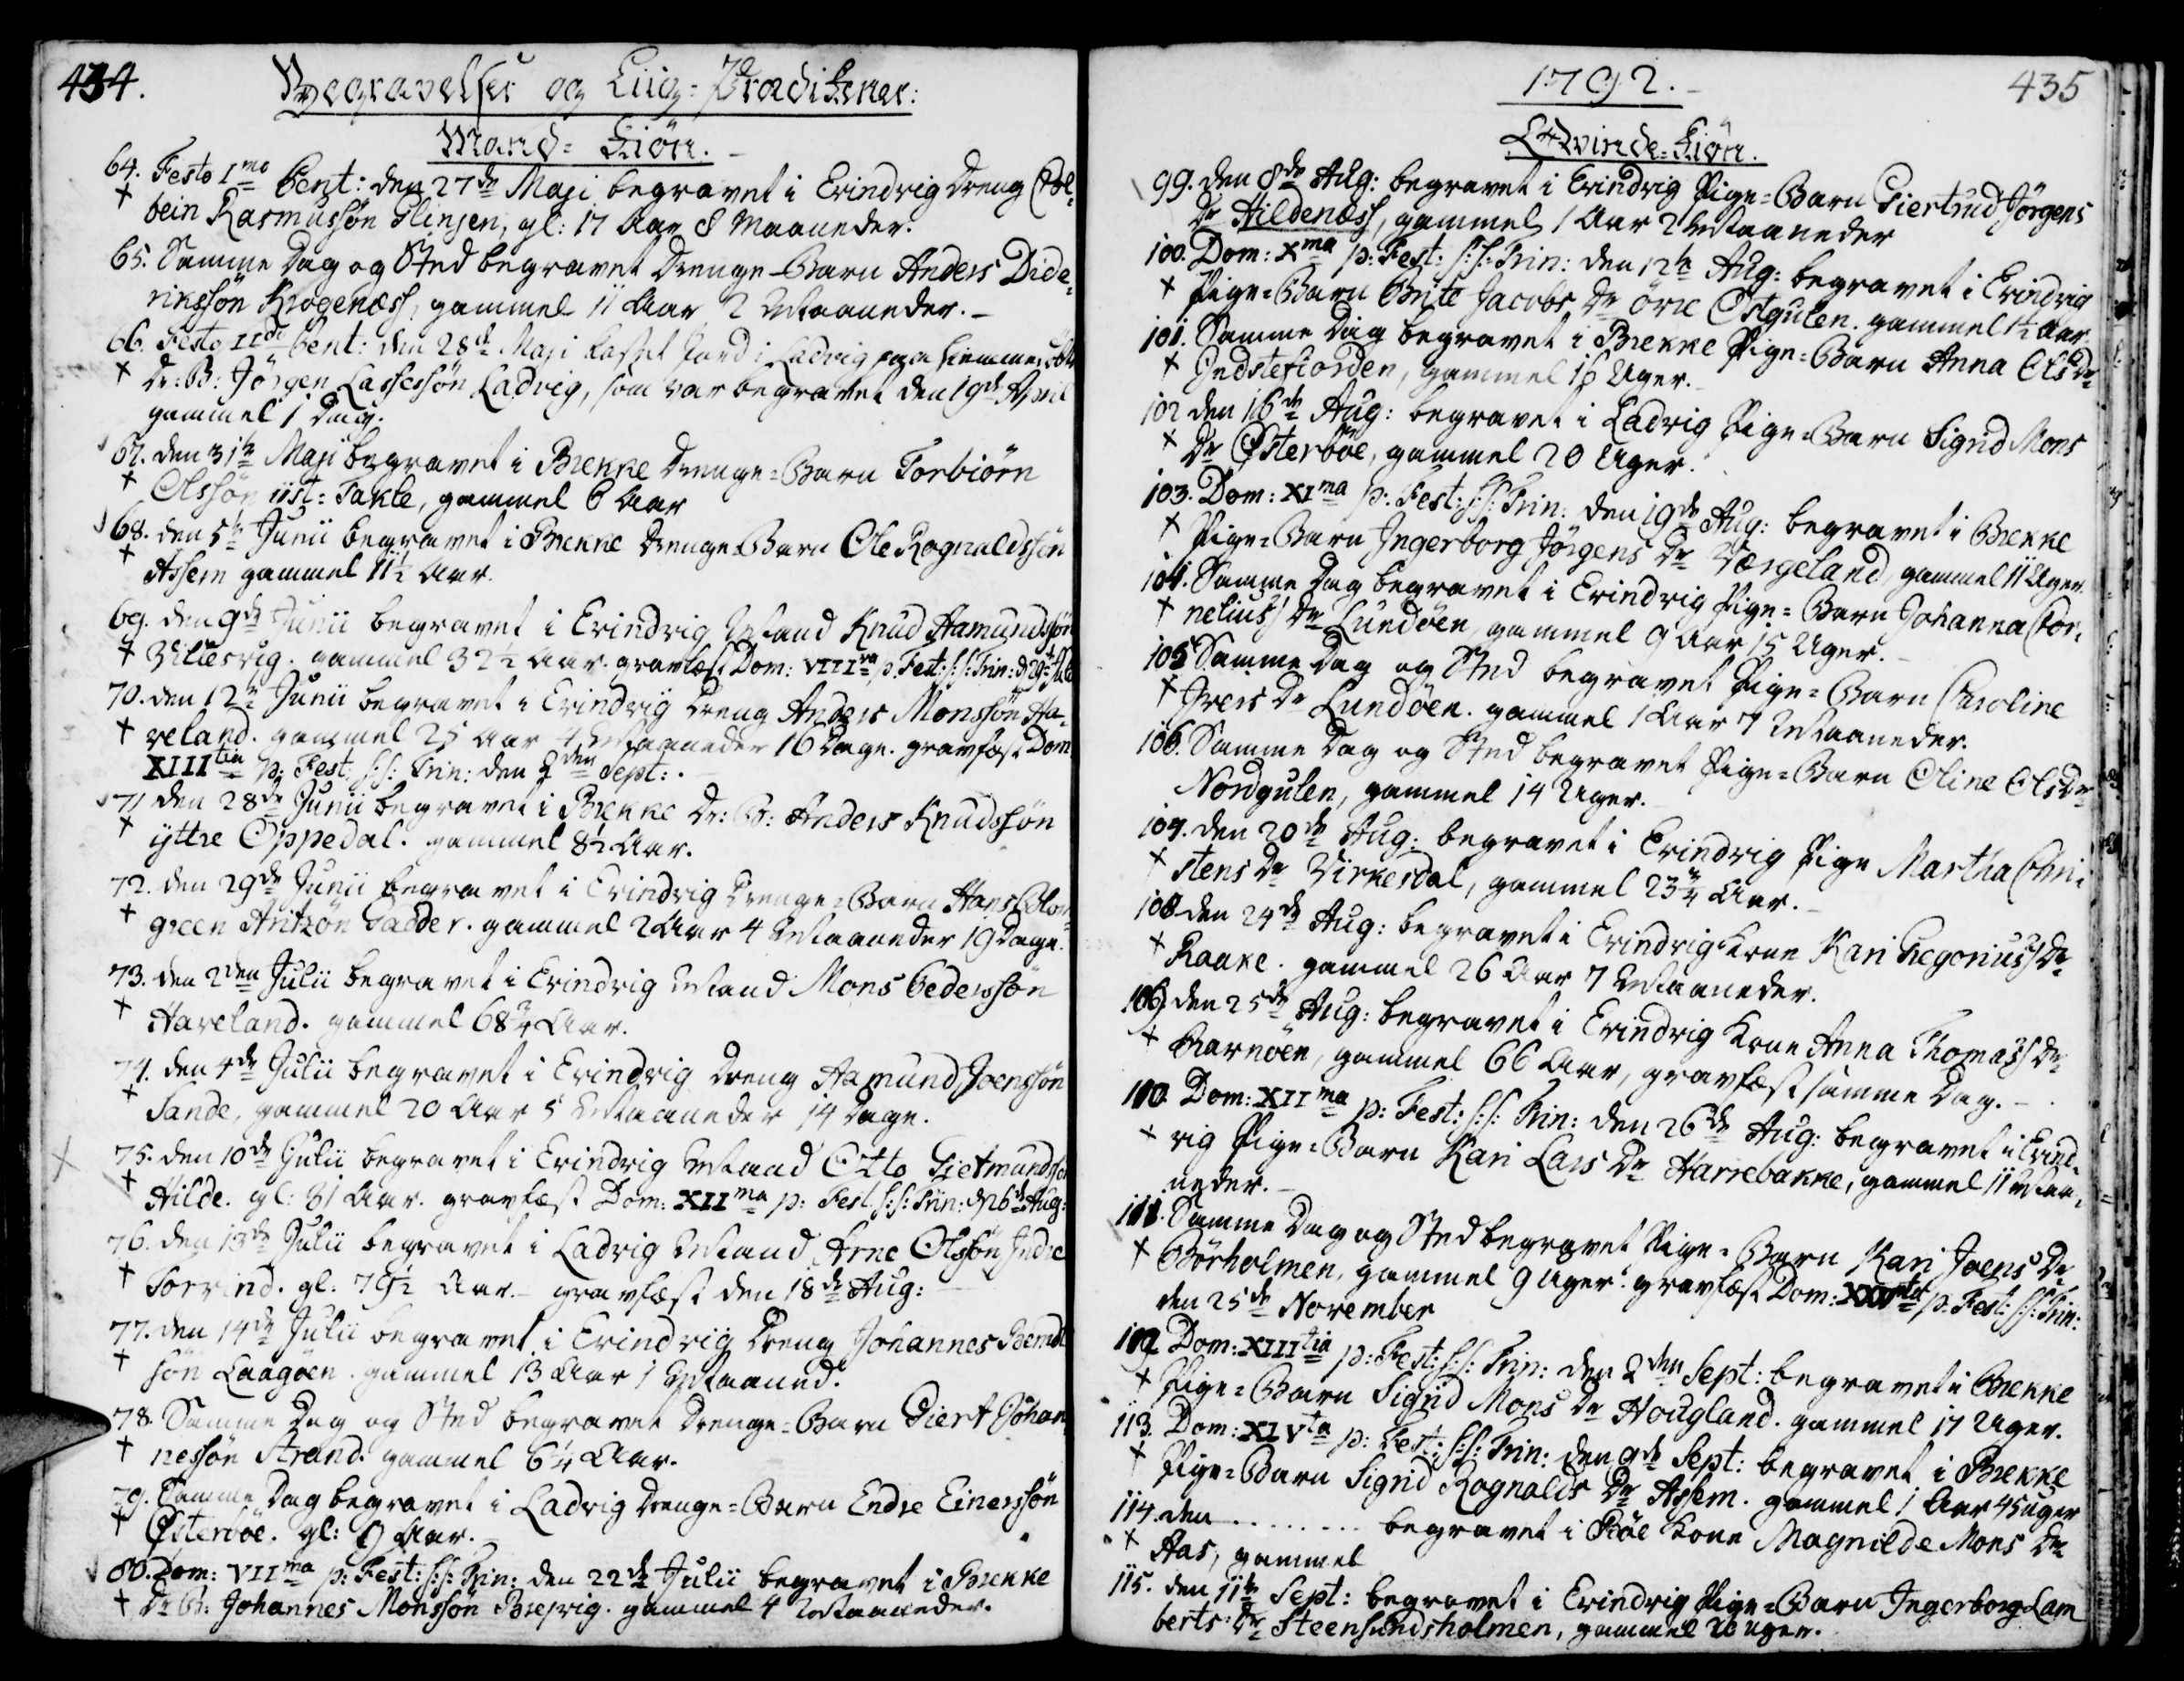 434.
Begravelser og Liig-Prædikener:
Mand-Kiön.
64. Festo I mo Pent: den 27de Maji begravet i Evindvig Dreng Col-
bein Rasmussøn Glinsen, gl: 17 Aar 8 Maaneder.
65. Samme Dag og Sted begravet Drenge-Barn Anders Dide-
rikssøn Krogenæss, gammel 11 Aar 2 Maaneder.
66. Festo II di Pent: den 28de Maji kastet Jord i Ladvig paa hiemme
Dr: B: Jørgen Lassessøn Ladvig, som var begravet den 19de April
gammel 1 Dag.
67. den 31te Maji begravet i Brekke Drenge-Barn Torbiörn
Olssøn iist: Takle, gammel 6 Aar
68. den 5te Junii begravet i Brekke Drenge Barn Ole Rognaldssøn
Assem gammel 11½ Aar.
69. den 9de Junii begravet i Evindvig Mand Knud Hamundssøn
Villesvig. gammel 32½ Aar. gravfæst Dom: VIII va p. Fest: s: s: Trin: d 29 Jul:
70. den 12te Junii begravet i Evindvig Dreng Anders Monssøn Ha-
veland. gammel 25 Aar 4 Maaneder 16 Dage. gravfæst Dom
XIII tia p: Fest: s: s: Trin: den 2den Sept:.
71. den 28de Junii begravet i Brekke Dr: B: Anders Knudssøn
yttre Oppedal. gammel 8½ Aar.
72. den 29de Junii begravet i Evindvig Drenge-Barn Hans
green Fritzøn Gadder. gammel 2 Aar 4 Maaneder 19 Dage.
73. den 2den Julii begravet i Evindvig Mand Mons Pederssøn
Haveland. gammel 68¾ Aar.
74. den 4de Julii begravet i Evindvig Dreng Hamund Joenssøn
Sande, gammel 20 Aar 5 Maaneder 14 Dage.
75. den 10de Julii begravet i Evindvig Mand Otto Gietmundssøn
Hilde. gl: 81 Aar. gravfæst Dom: XII ma p: Fest: s: s: Trin: d 26de Aug:
76. den 13de Julii begravet i Ladvig Mand Arne Olssøn Indre
Torvind. gl: 79½ Aar.- gravfæst den 18de Aug:
77. den 14de Julii begravet i Evindvig Dreng Johannes Berndt
søn Laagøen. gammel 13 Aar 1 Maaned.
78. Samme Dag og Sted begravet Drenge-Barn Giert Johan
nessøn Strand. gammel 6¼ Aar.
79. Samme Dag begravet i Ladvig Drenge-Barn Endre Einerssøn
Østerböe. gl: 9 Aar.
80. Dom: VII ma p: Fest: s: s: Trin: den 22de Julii begravet i Brekke
Dr B: Johannes Monssøn Brejvig. gammel 4 Maaneder.
1792.
435
Qvinde-Kiön.
99. den 8de Aug: begravet i Evindvig Pige-Barn Giertrud Jørgens
Dr Hildenæss, gammel 1 Aar 2 Maaneder
100. Dom: X ma p: Fest: s: s: Trin: den 12te Aug: begravet i Evindvig
Pige-Barn Brite Jacobs Dr övre Östgulen. gammel 1½ Aar.
101. Samme Dag begravet i Brekke Pige-Barn Anna Ols Dr
Indstefiorden, gammel 16 Uger.
102 den 16de Aug: begravet i Ladvig Pige-Barn Sigrid Mons
Dr Østerböe, gammel 20 Uger.
103. Dom: XI ma p: Fest: s: s: Trin: den 19de Aug: begravet i Brekke
Pige-Barn Ingerborg Jörgens Dr Værgeland, gammel 11 Uger.
104. Samme Dag begravet i Evindvig Pige-Barn Johanna Cor-
neliuss Dr Lundøen, gammel 9 Aar 15 Uger.
105 Samme Dag og Sted begravet Pige-Barn Caroline
Ivers Dr Lundøen. gammel 1 Aar 7 Maaneder.
106. Samme Dag og Sted begravet Pige-Barn Oline Ols Dr
Nordgulen, gammel 14 Uger.
107. den 20de Aug: begravet i Evindvig Pige Martha Chri-
stens Dr Virkesdal, gammel 23¾ Aar.
108 den 24de Aug: begravet i Evindvig Kone Kari Gregoriuss Dr
Raake. gammel 26 Aar 7 Maaneder.
109. den 25de Aug: begravet i Evindvig Kone Anna Thomass Dr
Barnöen, gammel 66 Aar, gravfæst samme Dag.-
110. Dom: XII ma p: Fest: s: s: Trin: den 26de Aug: begravet i Evind-
vig Pige-Barn Kari Lars Dr Harrebakke, gammel 11 Maa-
neder.
111. Samme Dag og Sted begravet Pige-Barn Kari Joens Dr
Børholmen, gammel 9 Uger. gravfæst Dom: XXV ta p: Fest: s: s: Trin:
den 25de November
112 Dom: XIII tia p: Fest: s: s: Trin: den 2den Sept: begravet i Brekke
Pige-Barn Sigrid Mons Dr Hougland. gammel 17 Uger.
113. Dom: XIV ta p: Fest: s: s: Trin: den 9de Sept: begravet i Brekke
Pige-Barn Sigrid Rognalds Dr Assem. gammel 1 Aar 45 uger
114. den ......... begravet i Böe Kone Magnilde Mons Dr
Aas, gammel
115. den 11te Sept: begravet i Evindvig Pige-Barn Ingerborg Lam
berts: Dr Steensundsholmen, gammel 20 Uger.